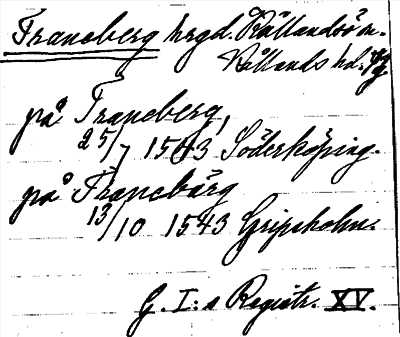 Traneberg hrgd. Kållandsö sn.
Kållands hd. Vg
på Traneberg,
25/7 1543 Söderköping.
på Tranebärg
13/10 1543 Gripsholm.
G. I:s Registr. XV.